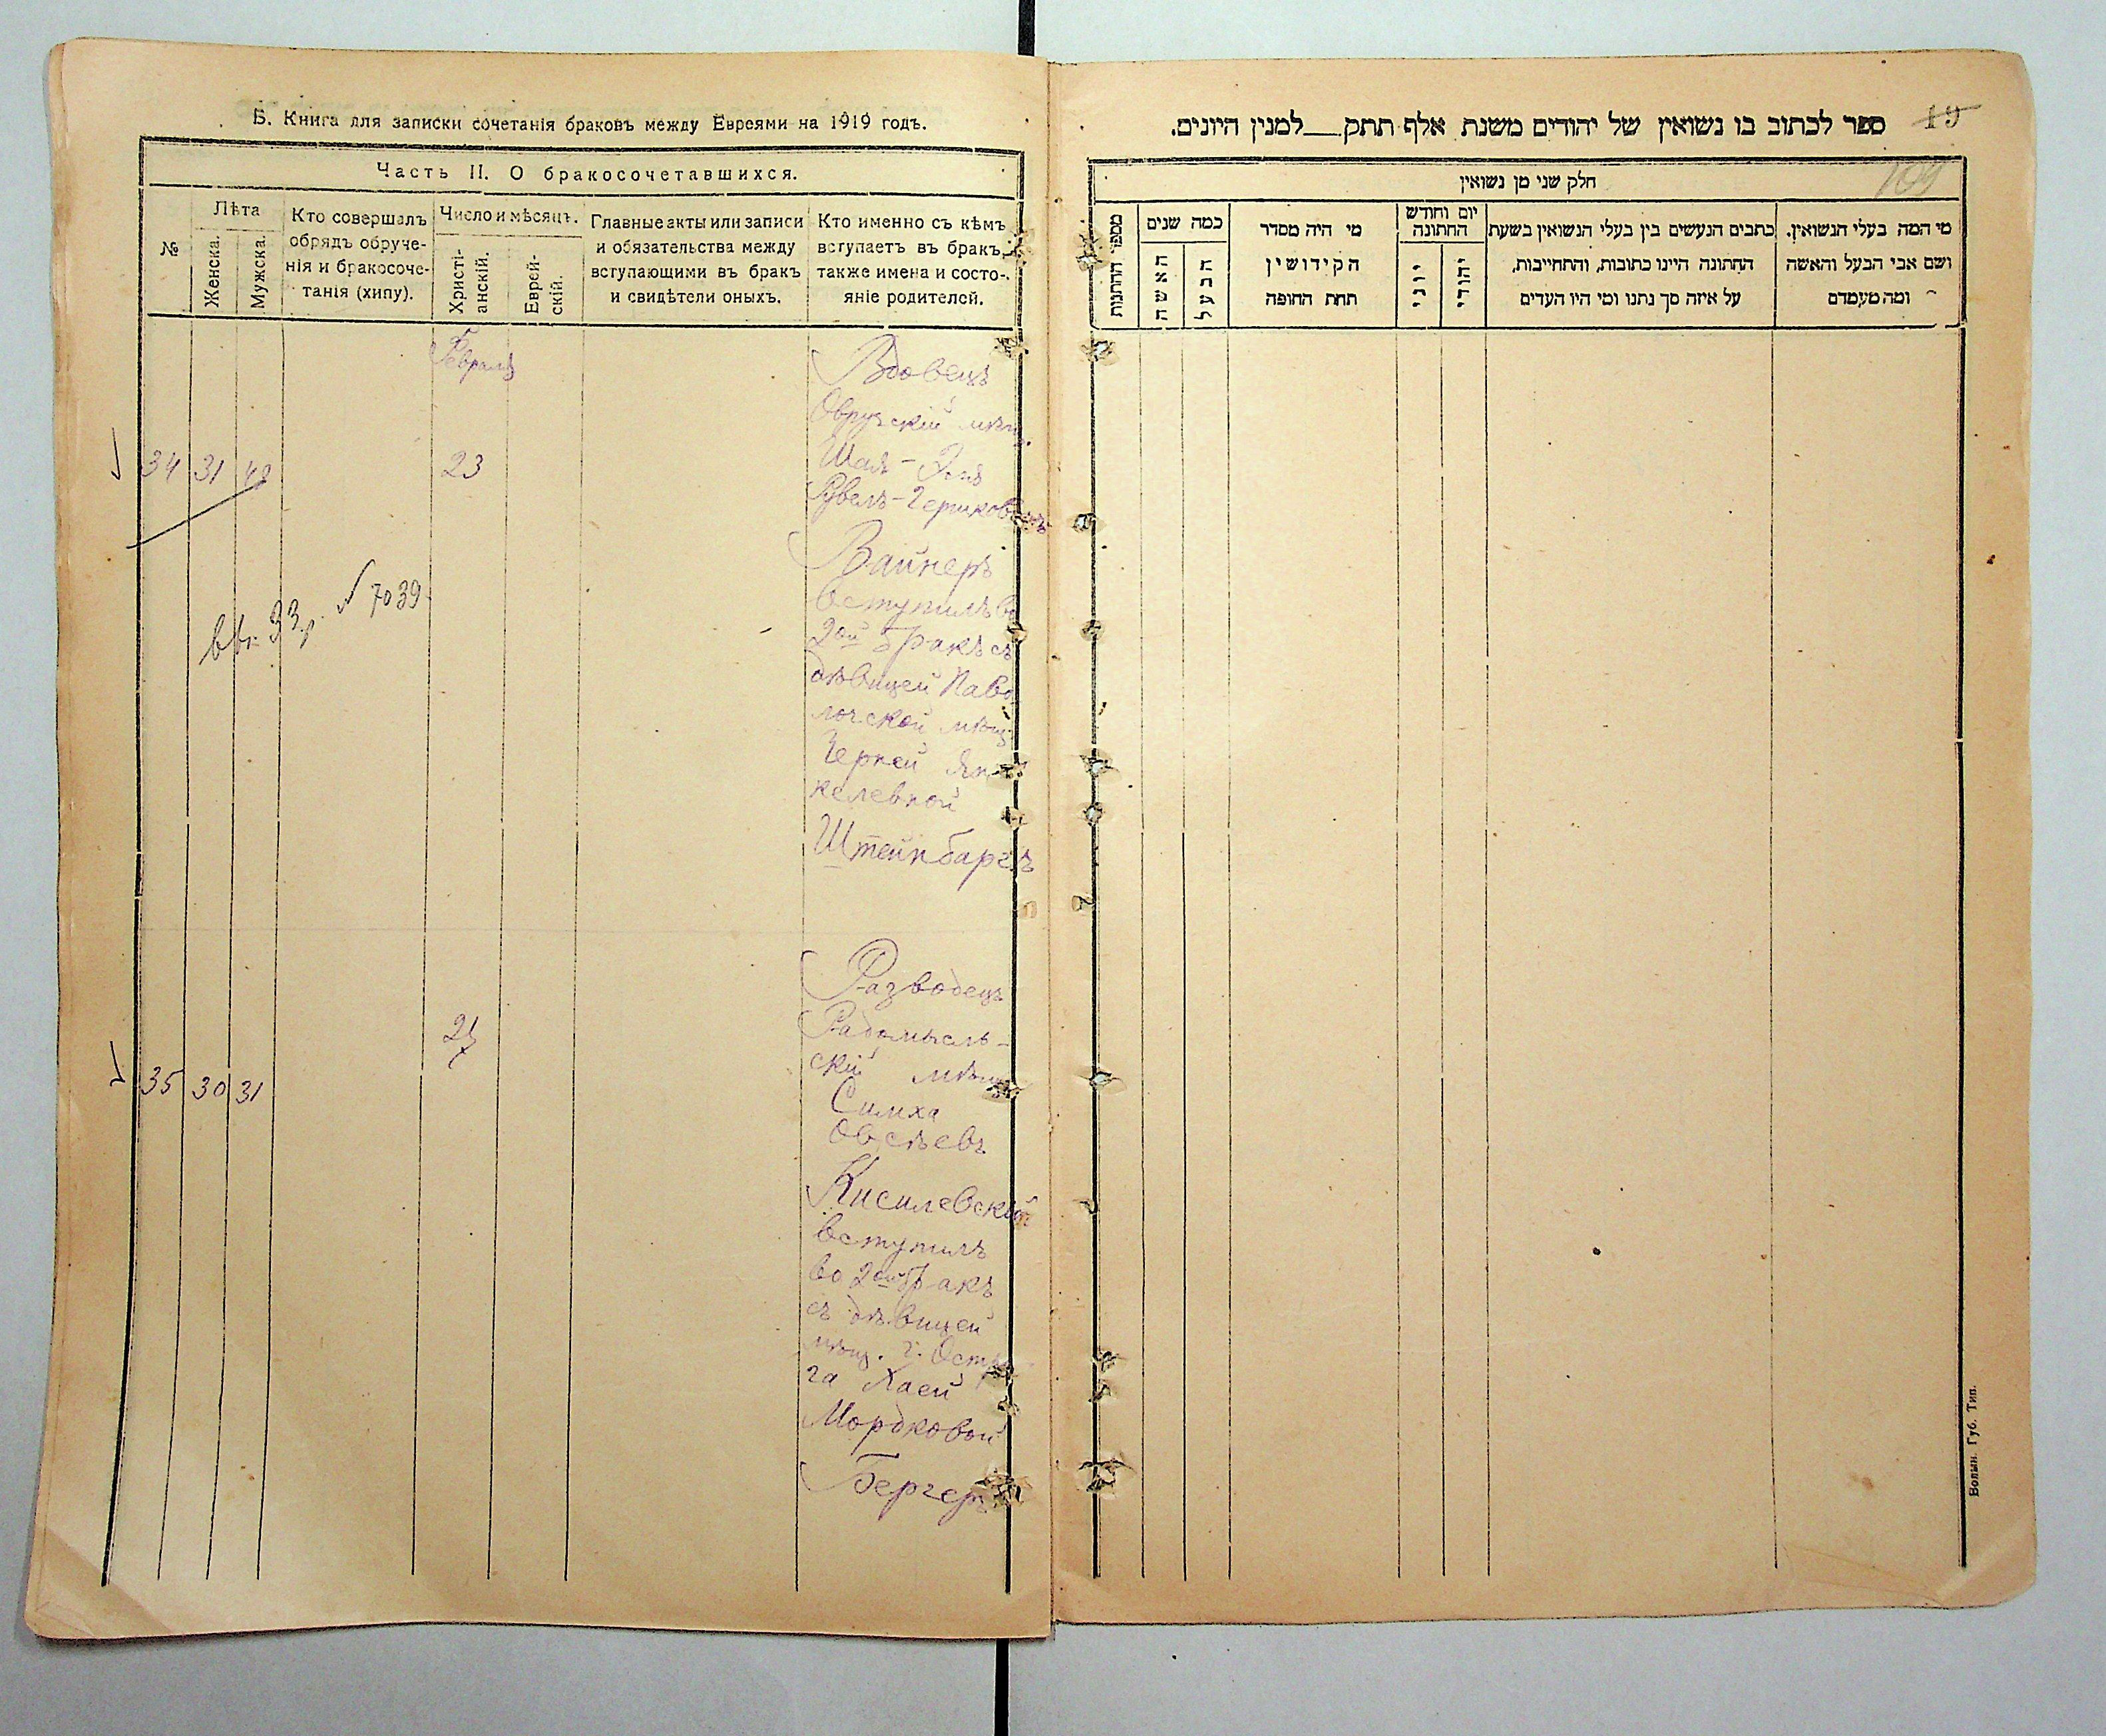 Б. Книга для записки сочетанія браковъ между Евреями на 1919 годъ.
Часть II. О бракосочетавшихся.
№
Лѣта
Женска.
Мужска.
Кто совершалъ
обрядъ обруче-
нія и бракосоче-
танія (хипу).
Число и мѣсяцъ.
Христі-
анскій.
Еврей-
скій.
Главные акты или записи
и обязательства между
вступающими въ бракъ
и свидѣтели оныхъ.
Кто именно съ кѣмъ
вступаетъ въ бракъ,
также имена и состо-
яніе родителей.
Февраль
34 31 48
23
Вдовецъ
Овручскій мѣщ.
Шая-
Вайнеръ
вступилъ во
2ой бракъ съ
дѣвицей Паво
лочской мѣщ.
Черней Ян-
келевной
Штейнбаргъ
33 г. № 7039
35 30 31
27
Разводецъ
Радомысль-
скій мѣщ.
Симха
Овсѣевъ
Кисилевскій
вступилъ
во 2ой бракъ
съ дѣвицей
мѣщ. г. Остро
га Хаей
Мордковой
Бергеръ
19
109
ספר לכתוב בו נשואין של יהודים משנת אלף תתק__למנין היונים.
חלק שני מן נשואין
מספר החתנות
כמה שנים
האשה
הבעל
מי היה מסדר
הקידושין
תחת החופה
יום וחודש
החתונה
יוני
יהודי
כתבים הנעשים בין בעלי הנשואין בשעת
החתונה היינו כתובות, והתחייבות,
על איזה סך נתנו ומי היו העדים
מי המה בעלי הנשואין.
ושם אבי הבעל והאשה
ומה מעמדם
Волын. Губ. Тип.